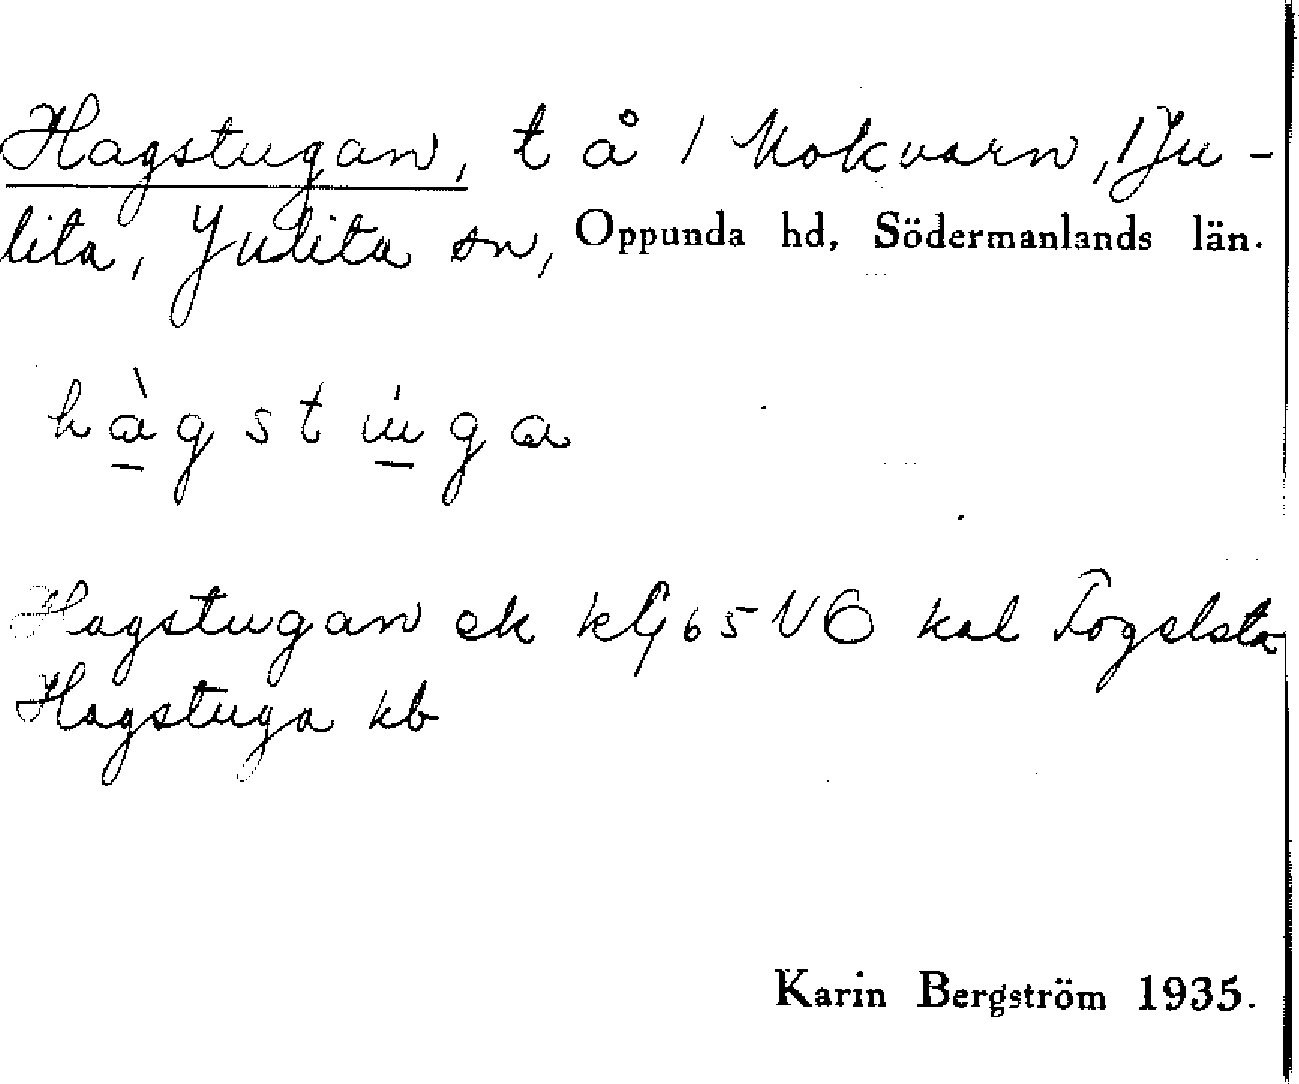 Hagstugan, t å / Mokvarn, 1 Ju-
lita, Julita sn, Oppunda hd, Södermanlands län.
hàgstuga
Hagstugan ek kG 65 VÖ kal Fogelsta
Hagstuga kb
Karin Bergström 1935.